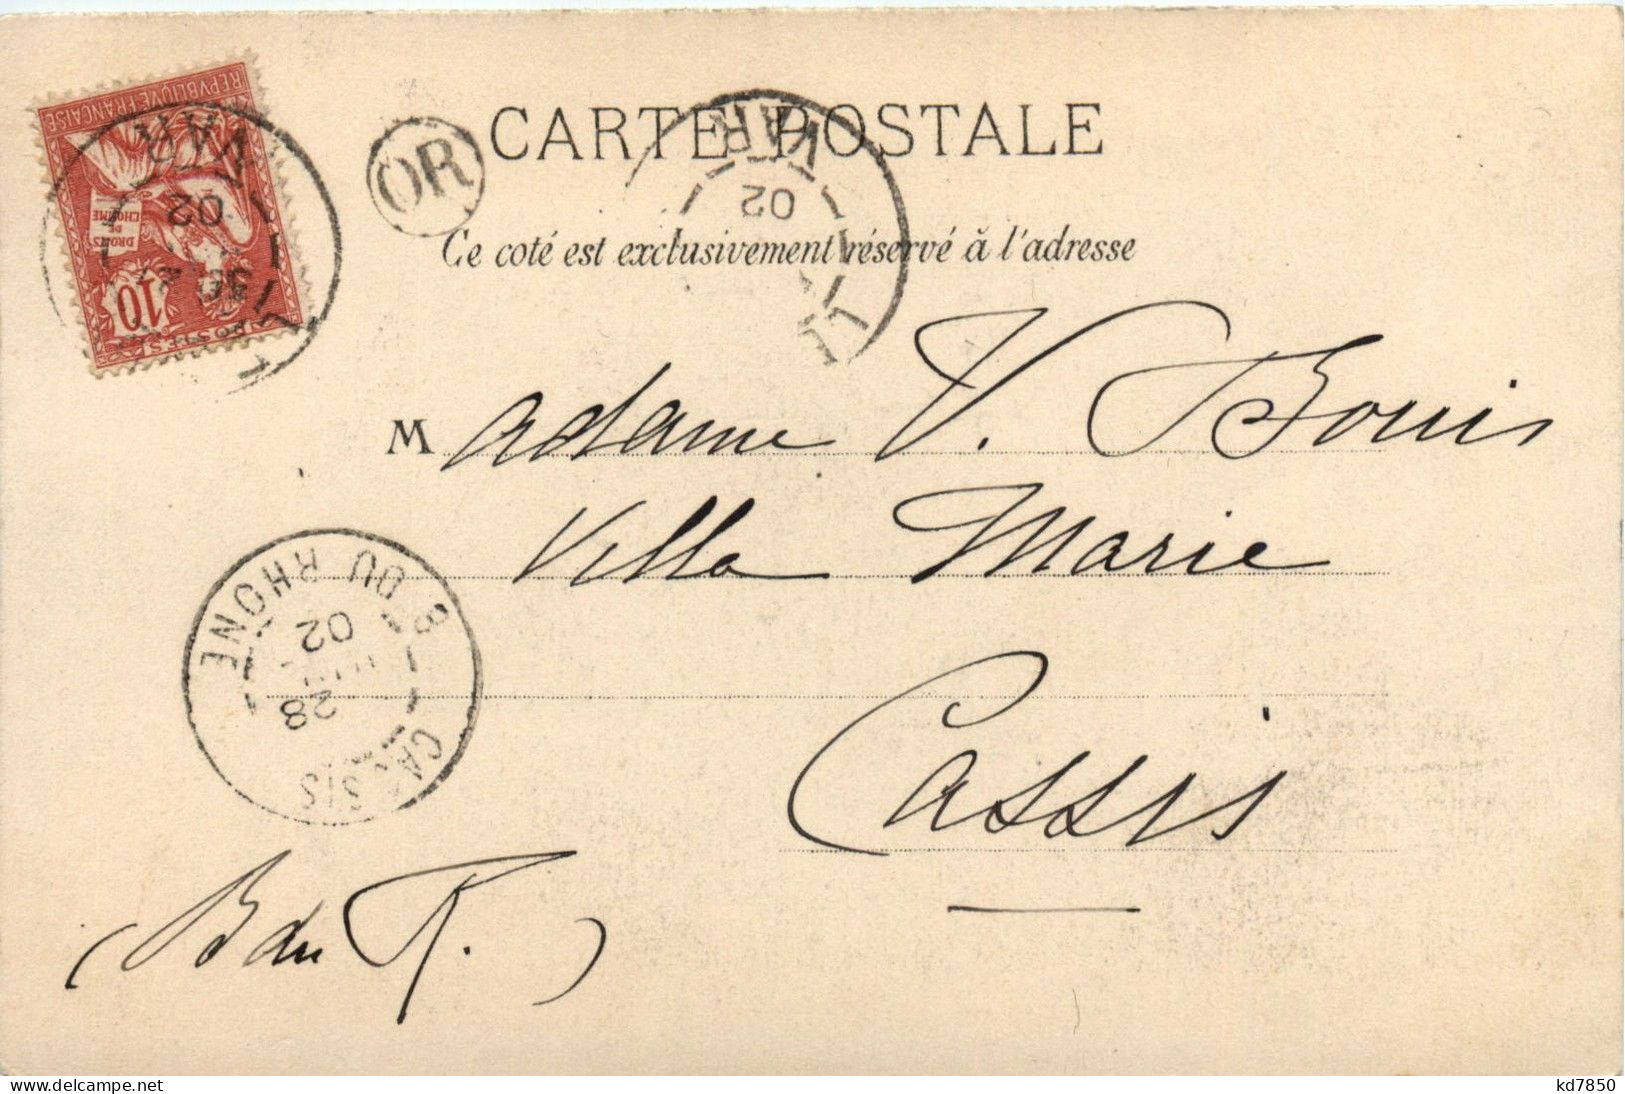 REPVBLIQVE FRANÇAISE
DROITS
DE
L'HOMME
10
POSTES
VAR
02
OR
CARTE POSTALE
VAR
02
Ce coté est exclusivement réservé à l'adresse
Madame V. Bouis
Villa Marie
Cassis
(B du R.)
CASSIS
28
02
B DU RHONE
kd7850